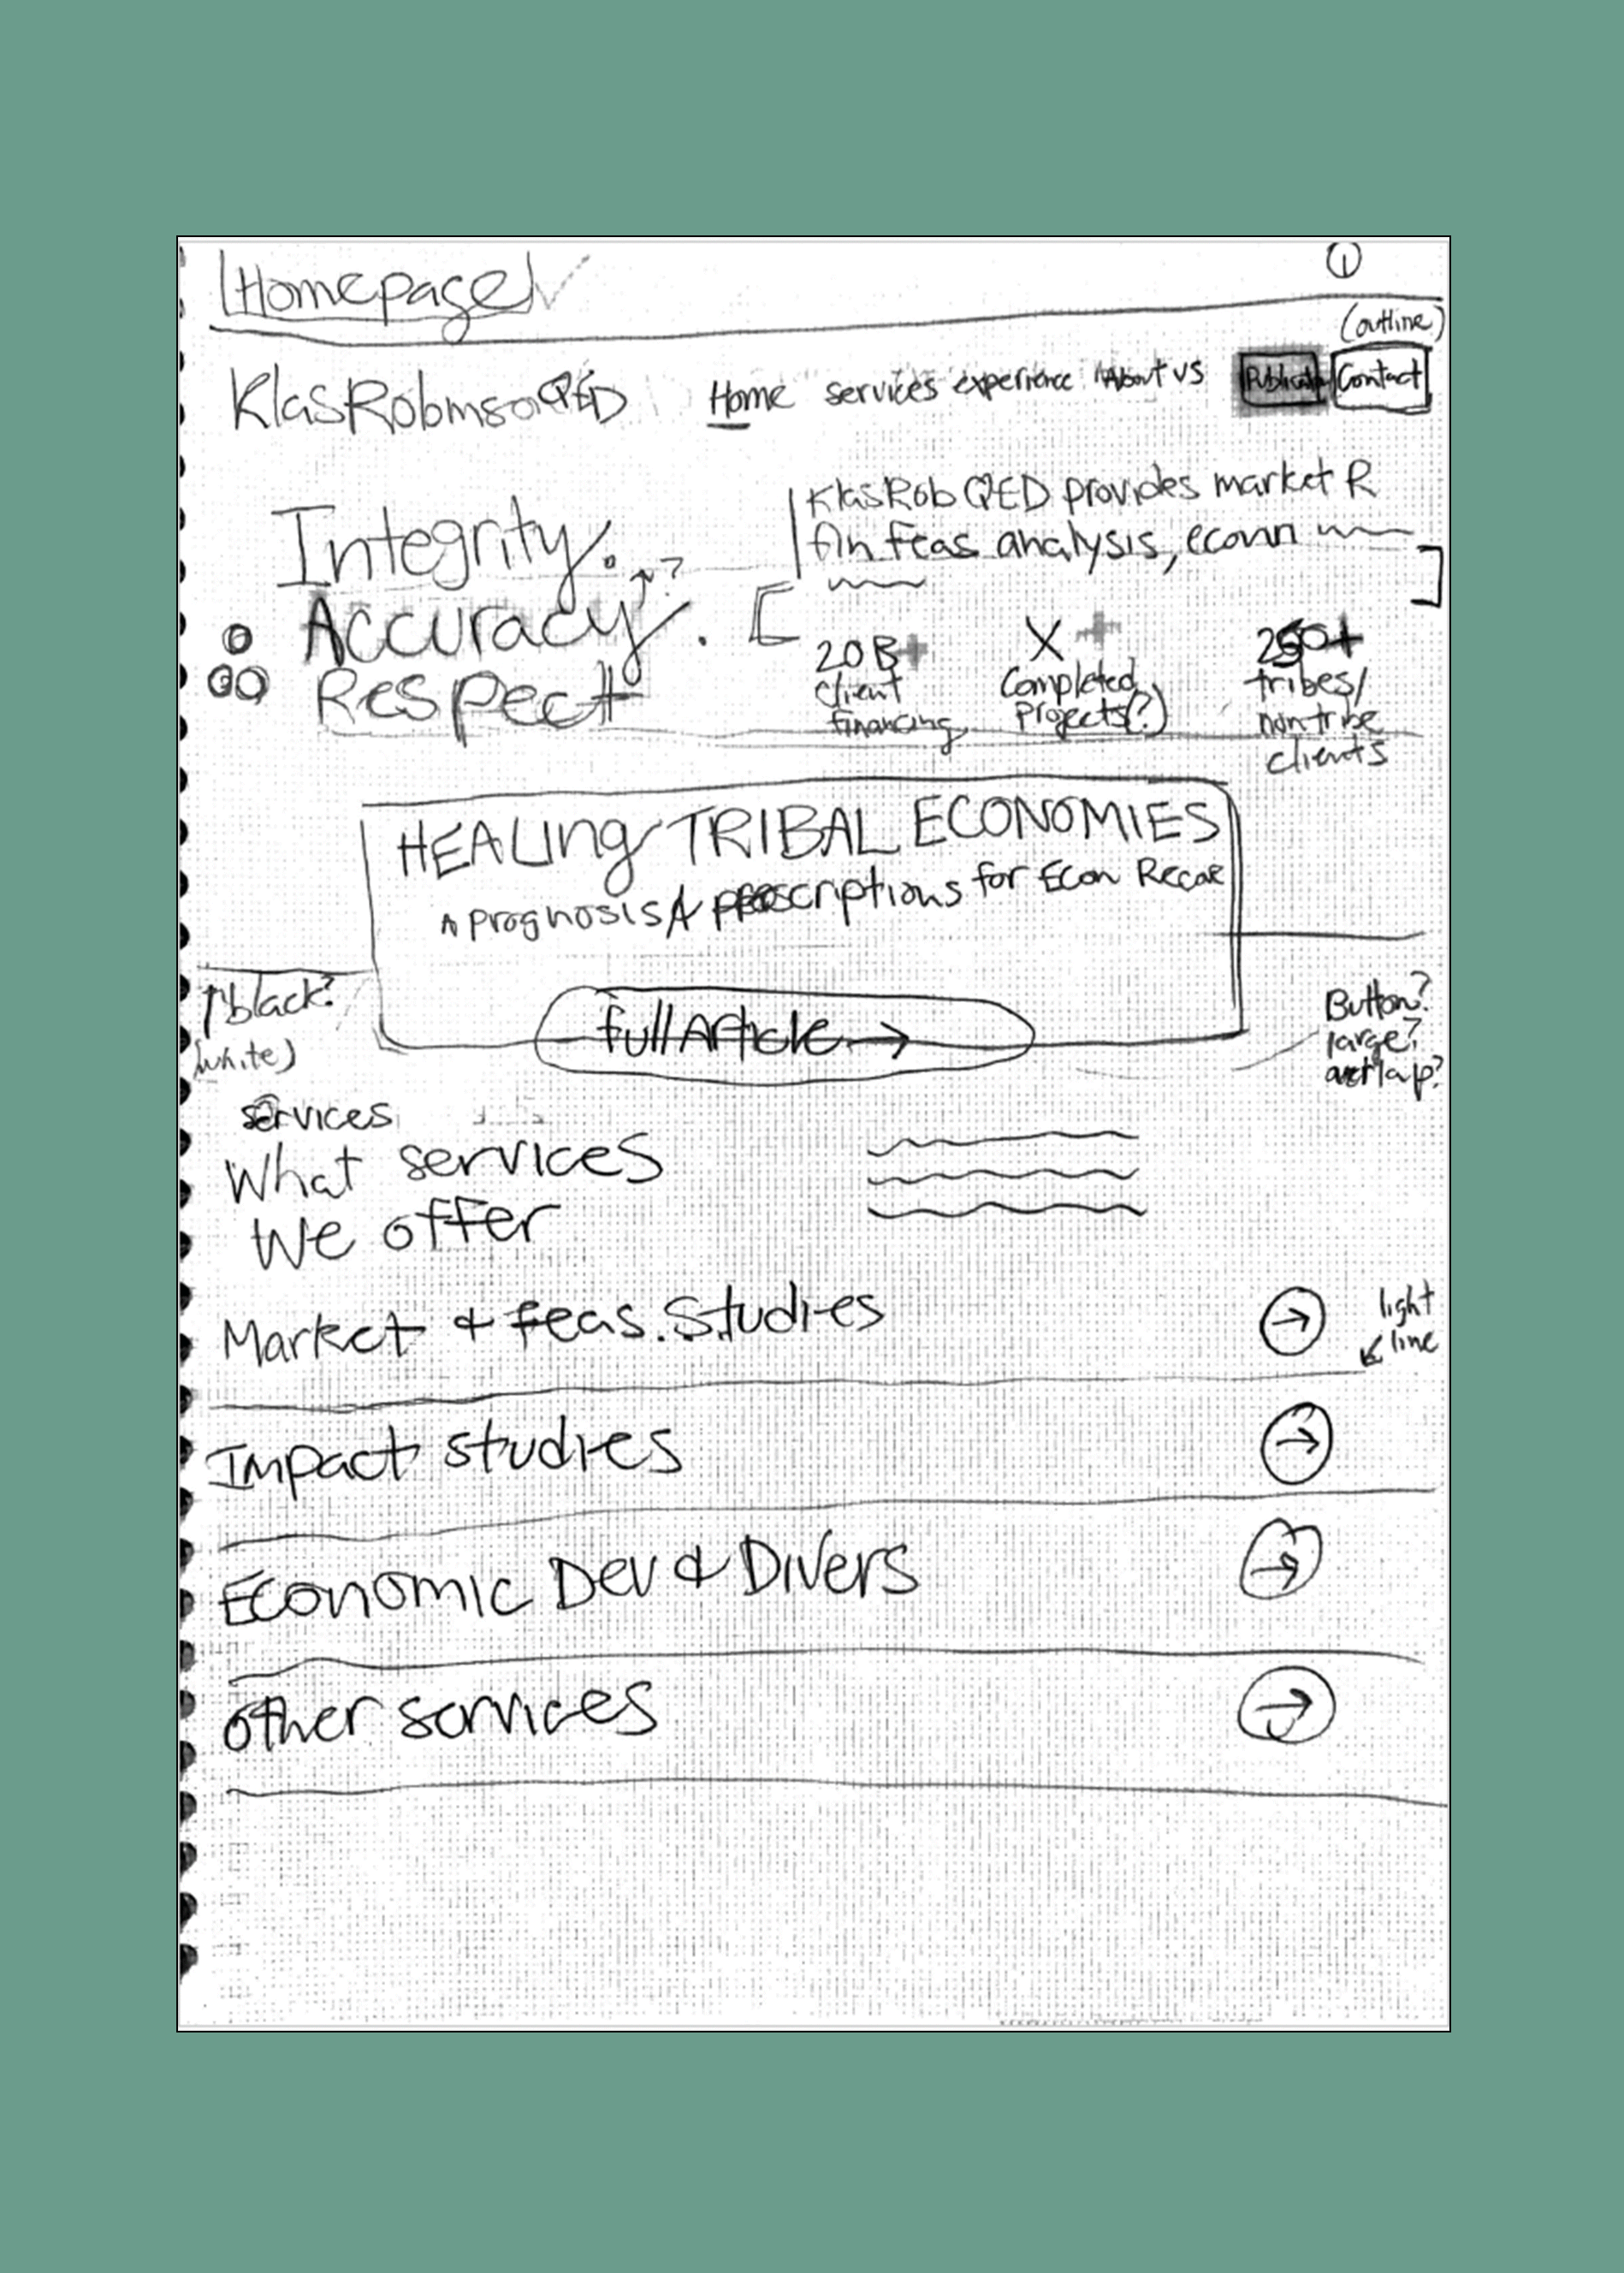 Homepage
1
(outline)
KlasRobinson QED Home services experience About us Contact
KlasRob QED provides market R
fin feas analysis, econ
Integrity.
?
Accuracy.
Respect
20B+
client
financing
X +
Completed
Projects(?)
250+
tribes/
nontribe
clients
HEALING TRIBAL ECONOMIES
A prognosis & prescriptions for Econ
Full Article →
↑black?
(white)
Button?
large?
overlap?
services
What services
We offer
Market & feas. Studies →
light
line
Impact studies →
Economic Dev & Divers →
other services →